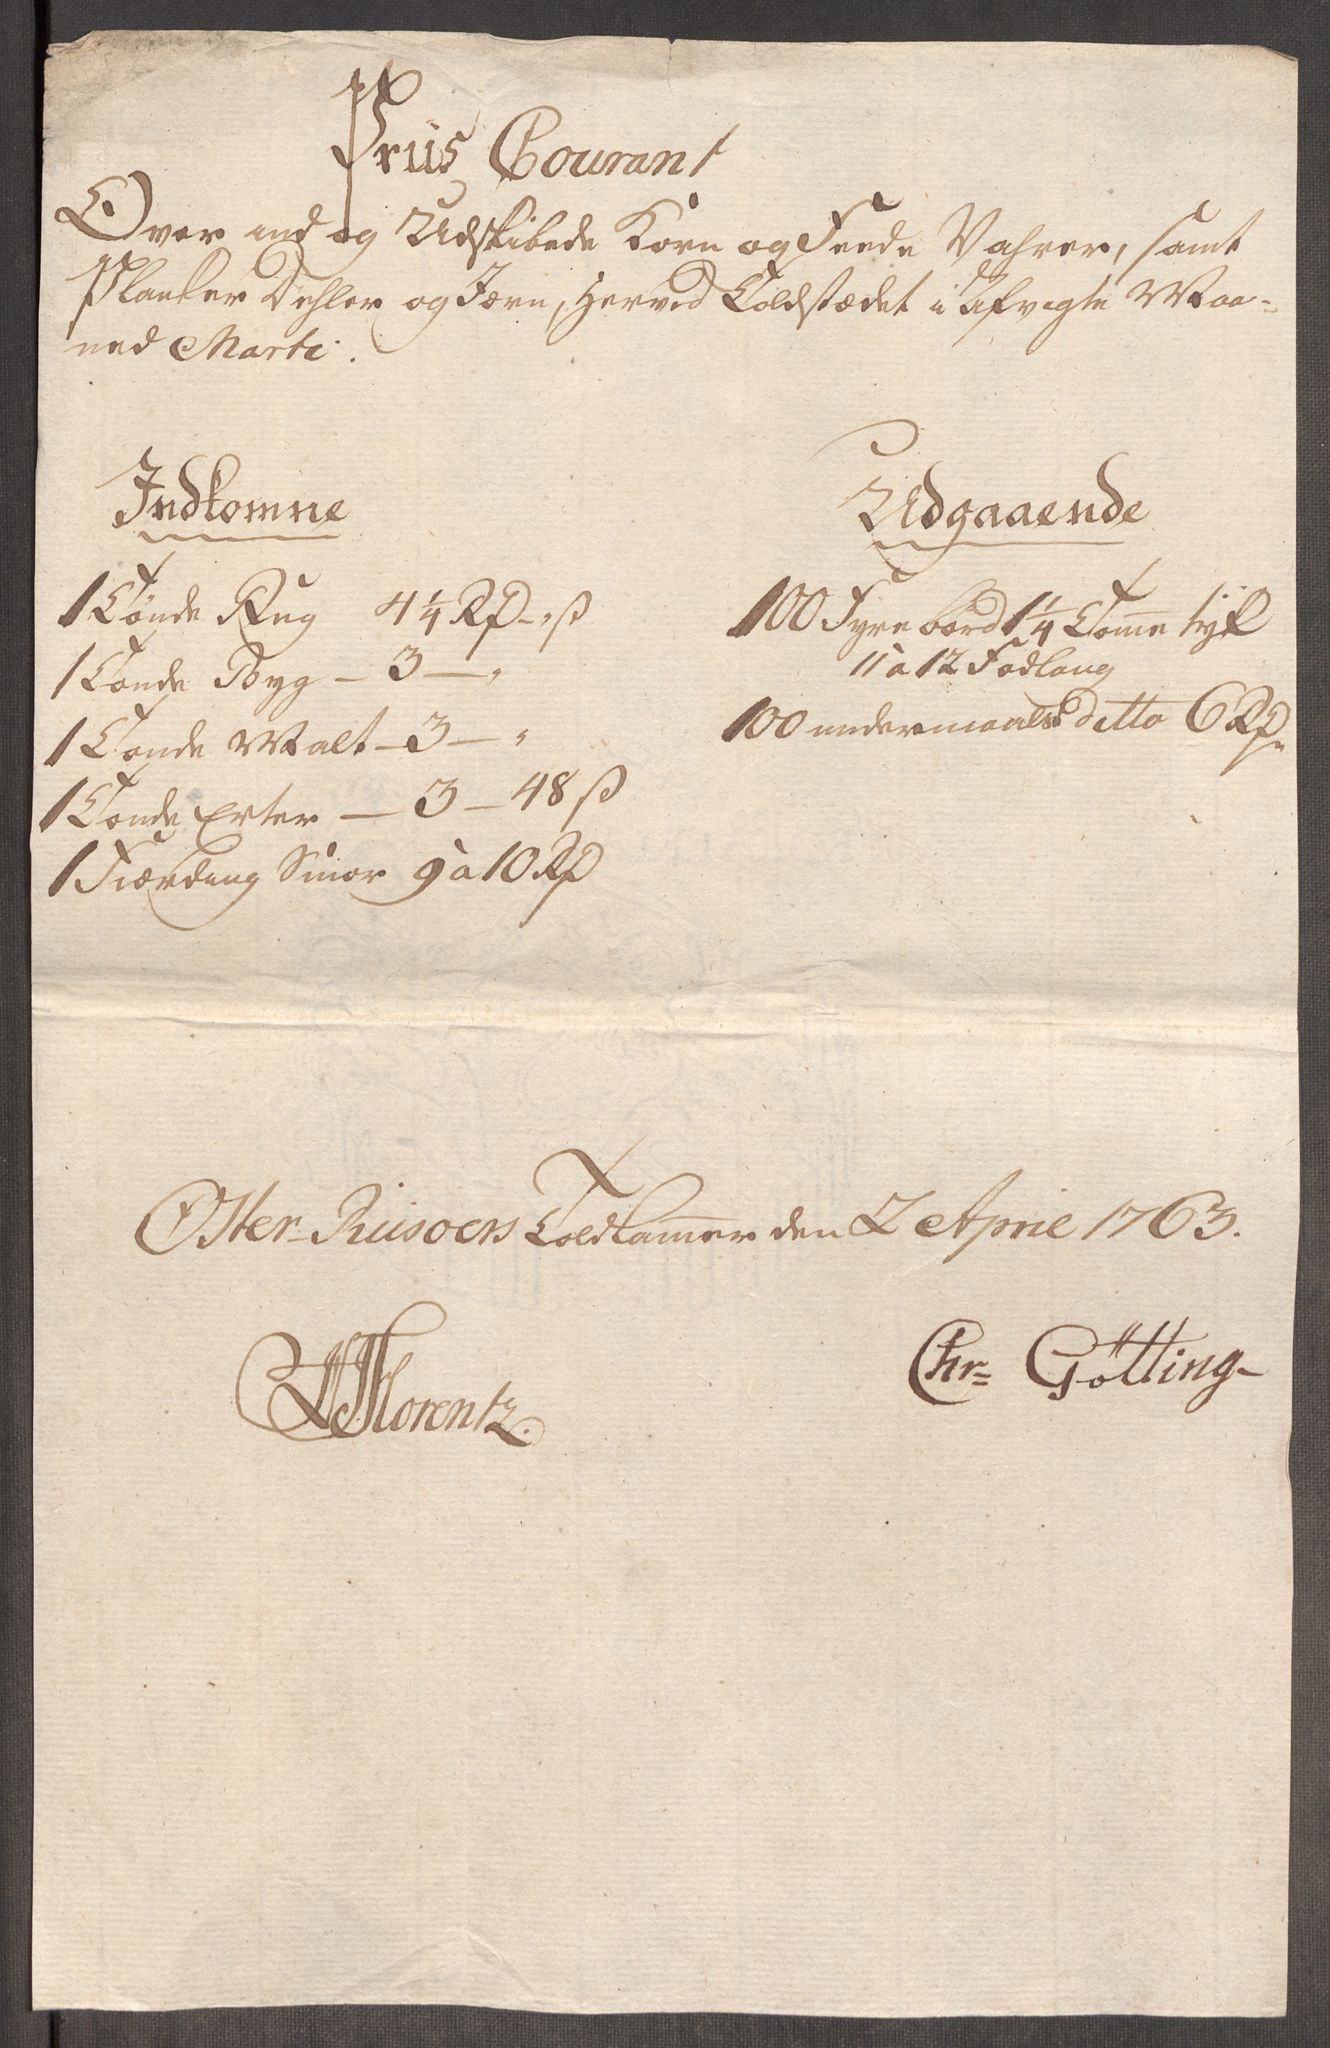 Priis Courant
Over ind og Udskibede Korn og Feede Vahrer, samt
Planker Dehler og Jærn, Herved Toldstædet i afvigte Maa-
ned Marti.
Indkomne
1 Tønde Rug 4 1/4 Rd - " ß
1 Tønde Byg - 3 - "
1 Tønde Malt - 3 - "
1 Tønde Erter - 3 - 48 ß
1 Fiærding Smør 9 a 10 Rd
Udgaaende
100 Fyrebord 1 1/4 Tomme tyk
11 a 12 Fod lang
100 undermaals ditto 6 Rd
Øster-Riisoers Toldkammer den 2 April 1763.
Florentz.
Chr= Götting